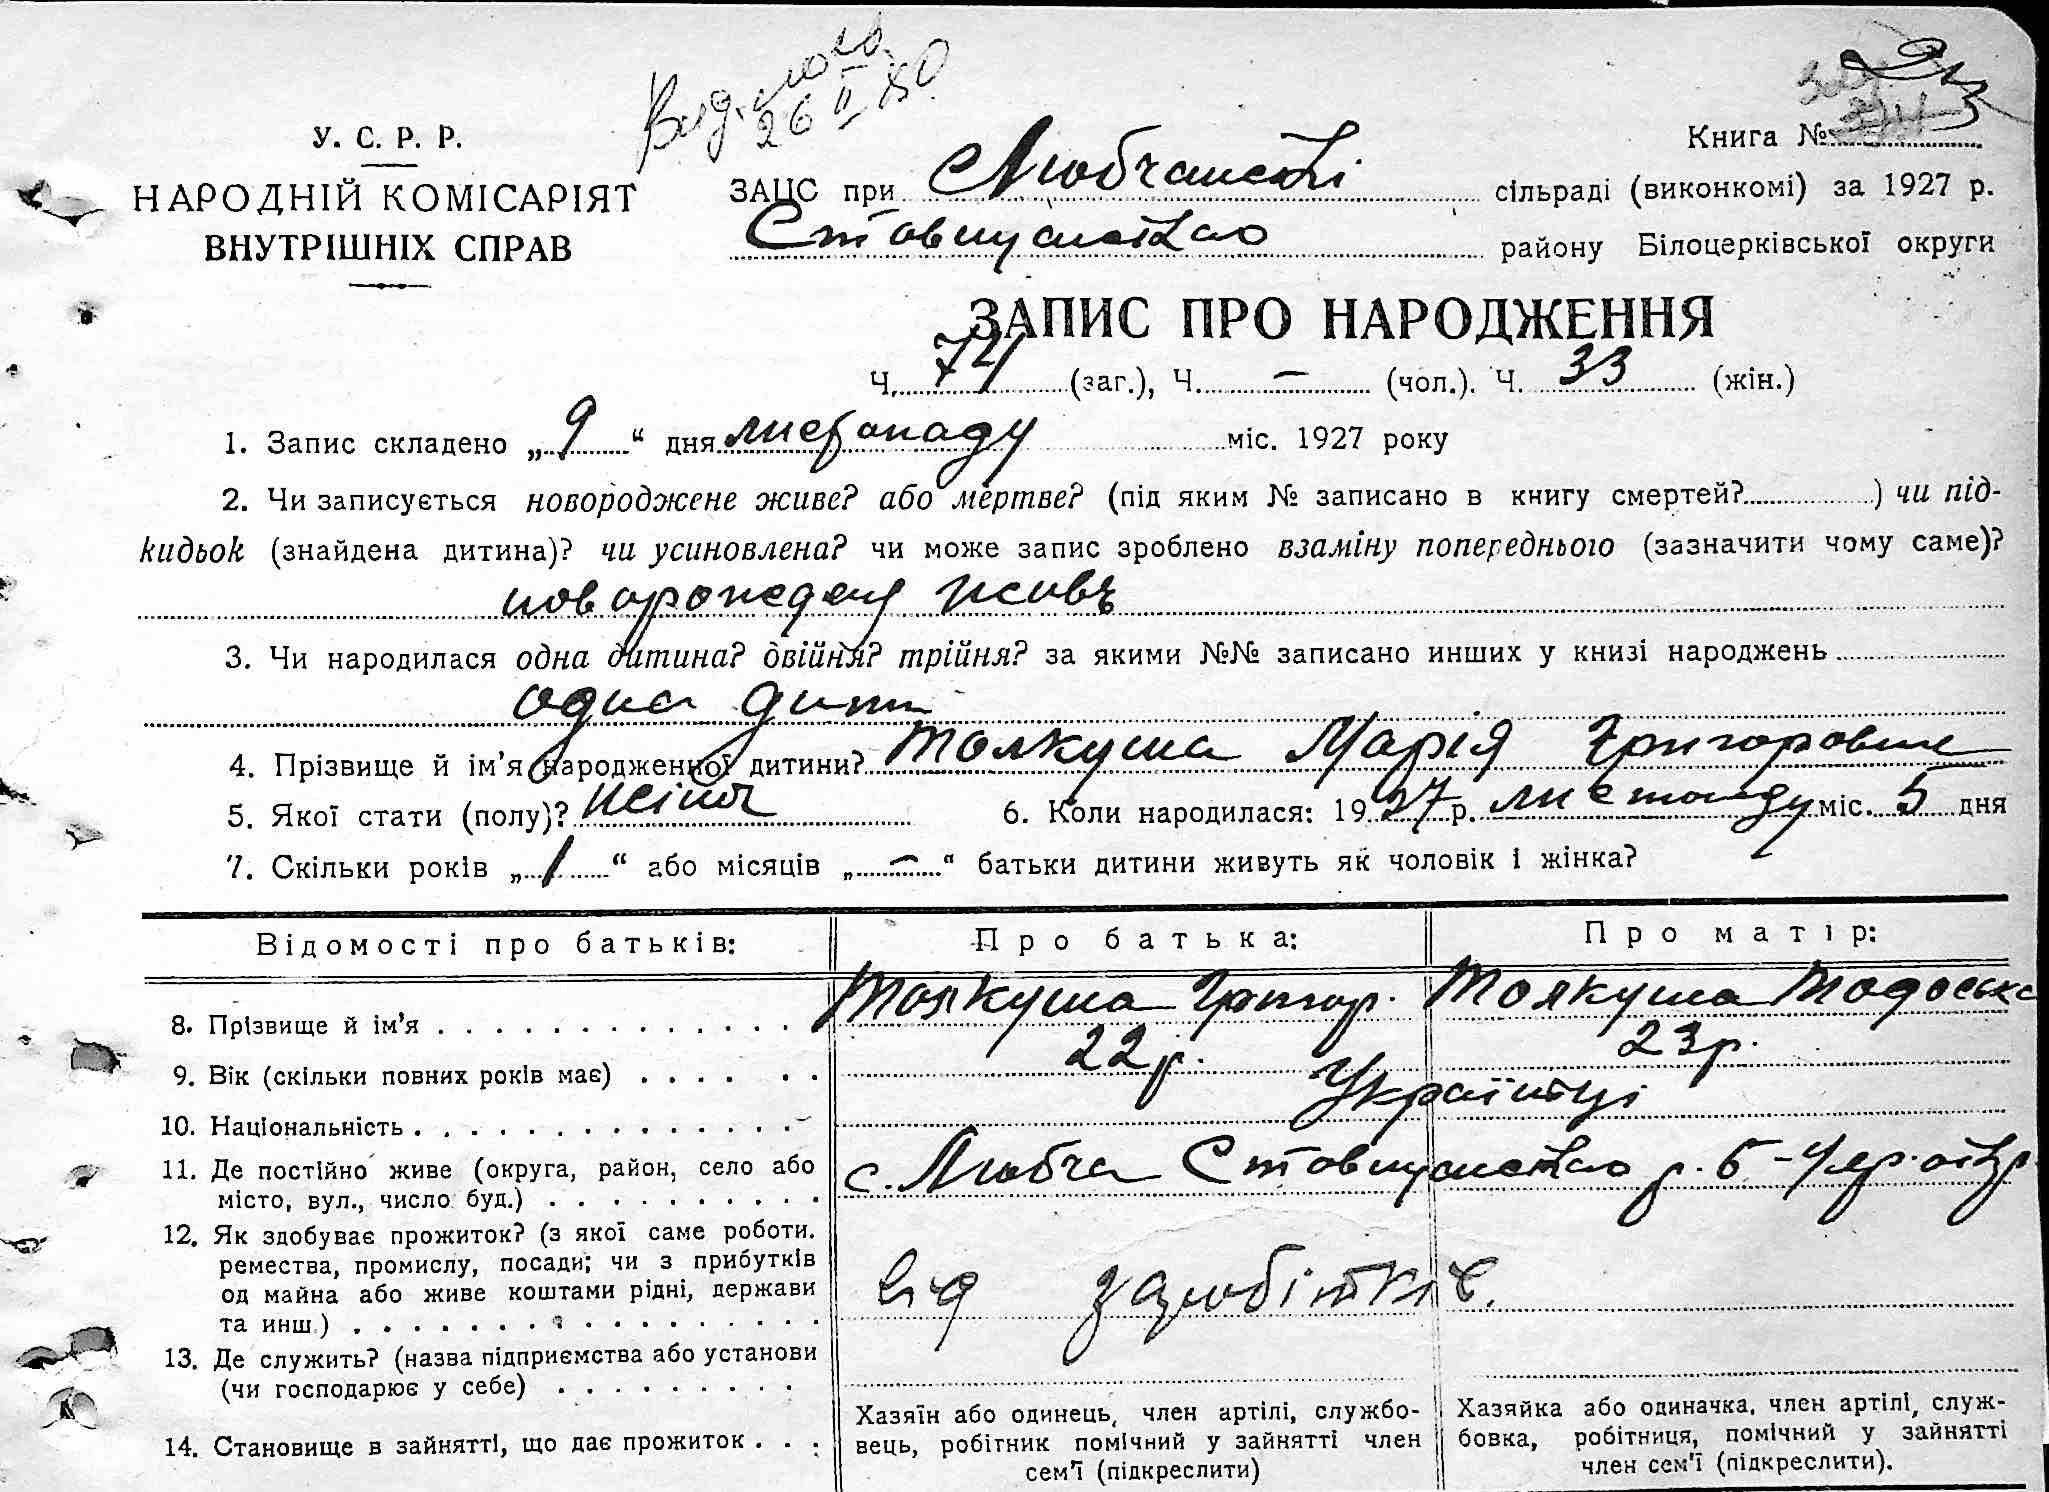 26 II 80
У. С. Р. Р.
НАРОДНІЙ КОМІСАРІЯТ
ВНУТРІШНІХ СПРАВ
Книга №
ЗАЦС при Любчанській сільраді (виконкомі) за 1927 р.
Ставищанського району Білоцерківської округи
ЗАПИС ПРО НАРОДЖЕННЯ
Ч. 74 (заг.), Ч. — (чол.). Ч. 33 (жін.)
1. Запис складено „ 9 “ дня листопаду міс. 1927 року
2. Чи записується новороджене живе? або мертве? (під яким № записано в книгу смертей? ) чи під-
кидьок (знайдена дитина)? чи усиновлена? чи може запис зроблено взаміну попереднього (зазначити чому саме)?
3. Чи народилася одна дитина? двійня? трійня? за якими №№ записано инших у книзі народжень
одна дит
4. Прізвище й ім’я народженної дитини? Толкуша Марія Григоровна
5. Якої стати (полу)? жіноч 6. Коли народилася: 1927 р. листопаду міс. 5 дня
7. Скільки років „ 1 “ або місяців „ — “ батьки дитини живуть як чоловік і жінка?
Відомості про батьків: Про батька: Про матір:
8. Прізвище й ім’я Толкуша Григор. Толкуша Тодоська
9. Вік (скільки повних років має) 22 р. 23 р.
10. Національність Українці
11. Де постійно живе (округа, район, село або
місто, вул., число буд.) с. Любча Ставищанського р. Б-Церк. окр.
12. Як здобуває прожиток? (з якої саме роботи.
ремества, промислу, посади; чи з прибутків
од майна або живе коштами рідні, держави
та инш.) від заробітків.
13. Де служить? (назва підприємства або установи
(чи господарює у себе)
14. Становище в зайнятті, що дає прожиток
Хазяїн або одинець, член артілі, службо-
вець, робітник помічний у зайнятті член
сем’ї (підкреслити)
Хазяйка або одиначка, член артілі, служ-
бовка, робітниця, помічний у зайнятті
член сем’ї (підкреслити).